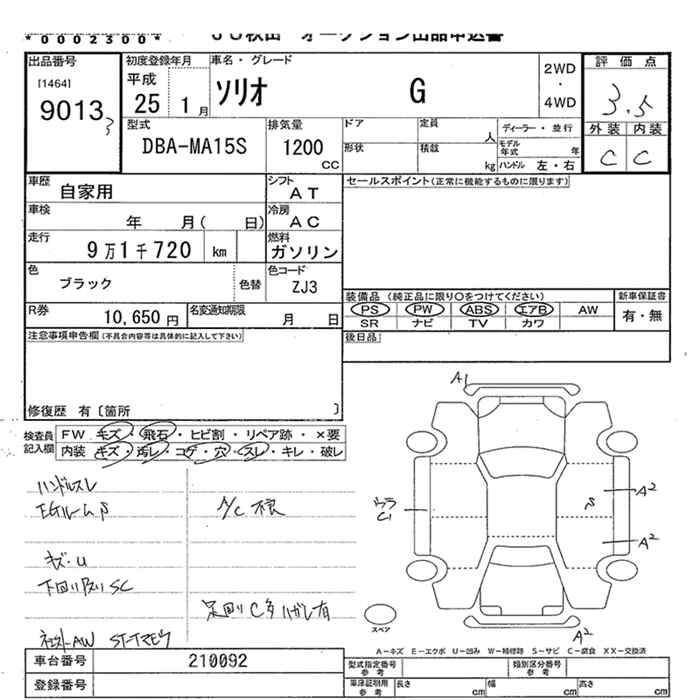 *0002300*
JU秋田 オークション出品申込書
出品番号
[1464]
9013
3
初度登録年月
平成
25 1月
車名・グレード
ソリオ G
2WD
・
4WD
評価点
3.5
外装 内装
C C
型式
DBA-MA15S
排気量
1200
CC
ドア
定員
人
ディーラー・並行
モデル年式 年
形状
積載
kg
ハンドル 左・右
車歴
自家用
シフト
AT
車検
年 月( 日)
冷房
AC
走行
9万1千720 km
燃料
ガソリン
色
ブラック
色替
色コード
ZJ3
R券
10,650円
名変通知期限
月 日
セールスポイント(正常に機能するものに限ります)
装備品 (純正品に限り○をつけてください)
新車保証書
PS PW ABS エアB AW
有・無
SR ナビ TV カワ
後日品
注意事項申告欄(不具合内容等は具体的に記入して下さい)
修復歴 有〔箇所 〕
検査員記入欄
FW キズ・飛石・ヒビ割・リペア跡・×要
内装 キズ・汚レ・コゲ・穴・スレ・キレ・破レ
ハンドルスレ
EGルームS
A/C 不良
キズ・U
下回りサビSC
足回りC多 ハガレ有
AW
A1
ウラ
C1
S
A2
A2
A2
スペア
A-キズ E-エクボ U-凹み W-補修跡 S-サビ C-腐食 XX-交換済
車台番号
210092
登録番号
型式指定番号
参考
類別区分番号
参考
車庫証明用
参考
長さ cm
幅 cm
高さ cm